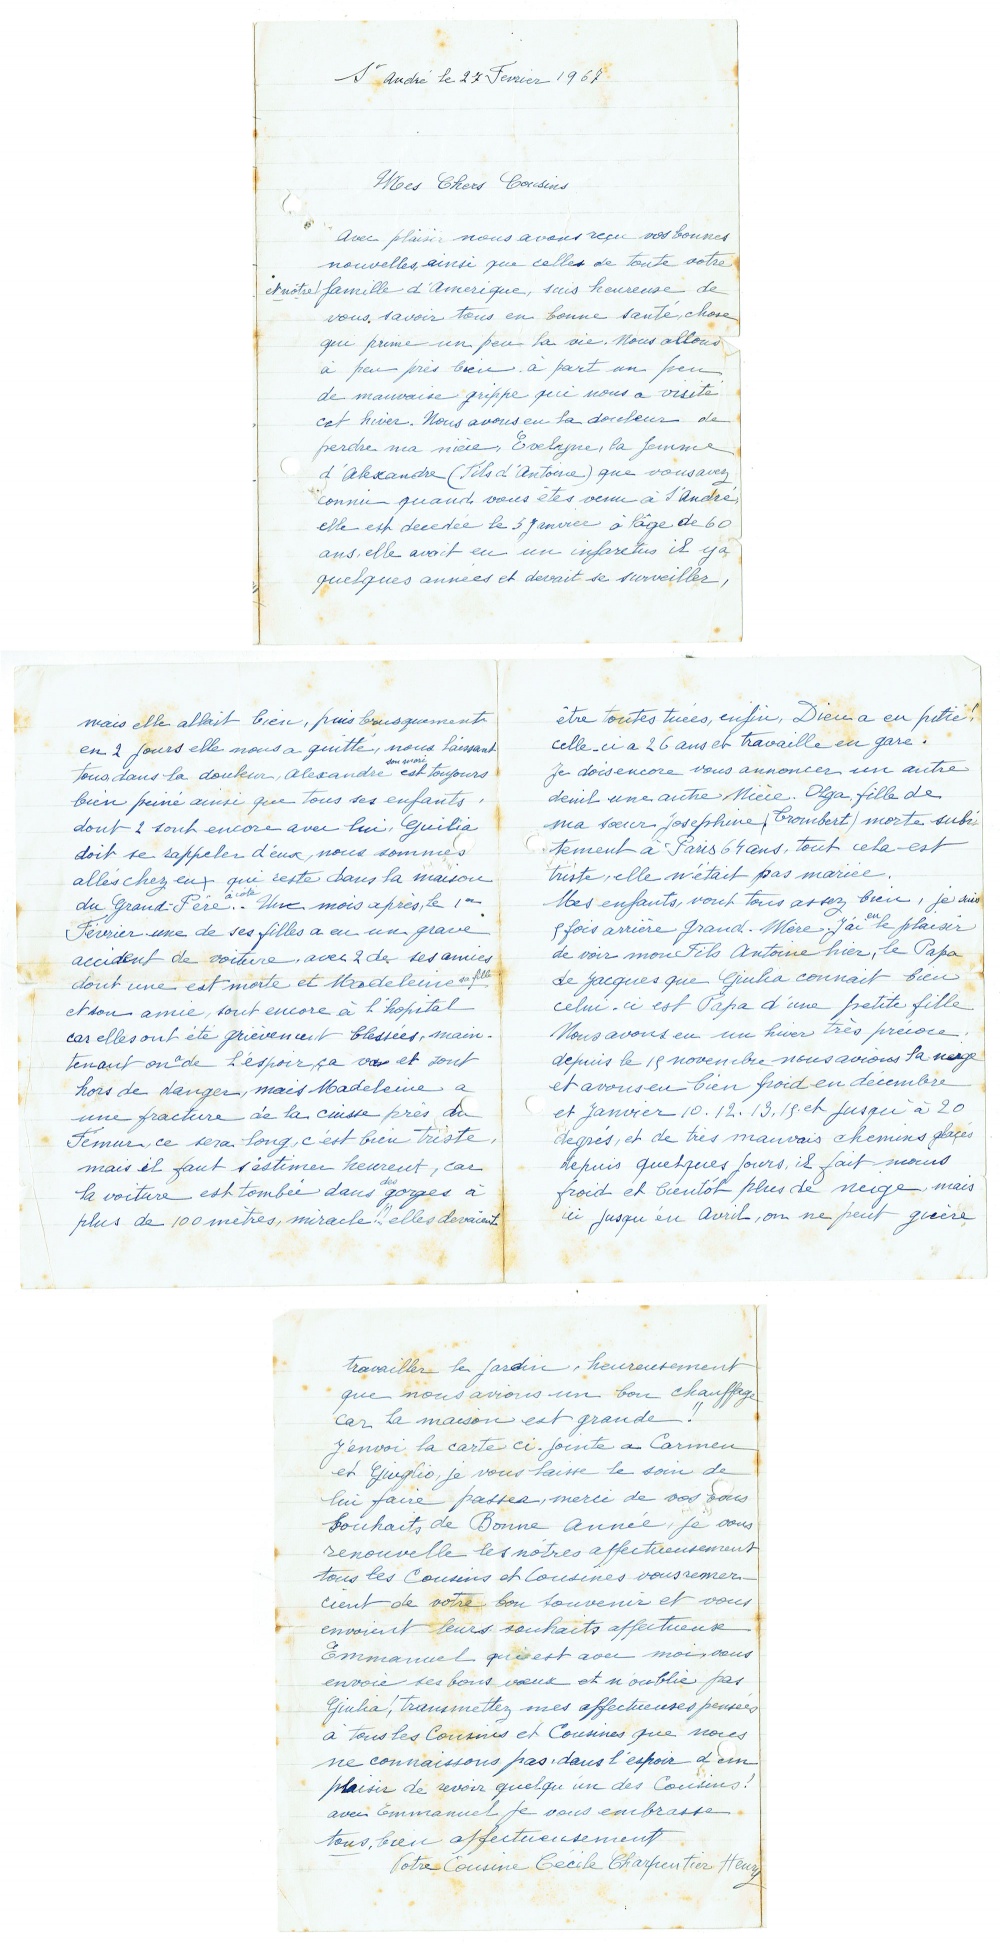 St André le 27 Février 1967
Mes Chers Cousins
Avec plaisir nous avons reçu vos bonnes
nouvelles, ainsi que celles de toute votre
et nôtre! famille d'Amerique, suis heureuse de
vous savoir tous en bonne santé, chose
qui prime un peu la vie. Nous allons
à peu près bien à part un peu
de mauvaise grippe qui nous a visité
cet hiver. Nous avons eu la douleur de
perdre ma nièce, Evelyne, la femme
d'Alexandre (Fils d'Antoine) que vous avez
connu quand vous êtes venu à St André,
elle est decedée le 5 Janvier à l'âge de 60
ans, elle avait eu un infarctus il y a
quelques années et devait se surveiller,
mais elle allait bien, puis brusquement
en 2 jours elle nous a quitté, nous laissant
tous dans la douleur, Alexandre son mari est toujours
bien peiné ainsi que tous ses enfants,
dont 2 sont encore avec lui, Guilia
doit se rappeler d'eux, nous sommes
allés chez eux qui reste dans la maison
du Grand-Père à côté.. Un mois après, le 1er
Février une de ses filles a eu un grave
accident de voiture, avec 2 de ses amies
dont une est morte et Madeleine sa fille
et son amie, sont encore à l'hôpital
car elles ont été grièvement blessées, main-
tenant on a de l'espoir, ça va et sont
hors de danger, mais Madeleine a
une fracture de la cuisse près du
Fémur, ce sera long, c'est bien triste,
mais il faut s'estimer heureux, car
la voiture est tombée dans des gorges à
plus de 100 mètres, miracle!!! elles devaient
être toutes tuées, enfin, Dieu a eu pitié!
celle-ci a 26 ans et travaille en gare.
Je dois encore vous annoncer un autre
deuil une autre Nièce. Olga, fille de
ma sœur Josephine (Trombert) morte subi-
tement à Paris 64 ans, tout cela est
triste, elle n'était pas mariée.
Mes enfants, vont tous assez bien, je suis
5 fois arrière Grand-Mère, J'ai eu le plaisir
de voir mon Fils Antoine hier, le Papa
de Jacques que Giulia connait bien
celui-ci est Papa d'une petite fille
Nous avons eu un hiver très précoce,
depuis le 15 novembre nous avions la neige
et avons eu bien froid en décembre
et Janvier 10. 12. 13, 15, et jusqu'à 20
degrés, et de très mauvais chemins glacés
depuis quelques jours, il fait moins
froid et bientôt plus de neige, mais
ici jusqu'en Avril, on ne peut guère
travailler le jardin, heureusement
que nous avions un bon chauffage
car la maison est grande!!
J'envoi la carte ci-jointe a Carmen
et Giuglio, je vous laisse le soin de
lui faire passer, merci de vos bons
souhaits de Bonne Année, je vous
renouvelle les nôtres affectueusement
tous les Cousins et Cousines vous remer-
cient de votre bon souvenir et vous
envoient leurs souhaits affectueux
Emmanuel qui est avec moi, vous
envoie ses bons vœux et n'oublie pas
Giulia! transmettez mes affectueuses pensées
à tous les Cousins et Cousines que nous
ne connaissons pas, dans l'espoir d'un
plaisir de revoir quelqu'un des Cousins!
avec Emmanuel je vous embrasse
tous, bien affectueusement
Votre Cousine Cécile Charpentier Henry